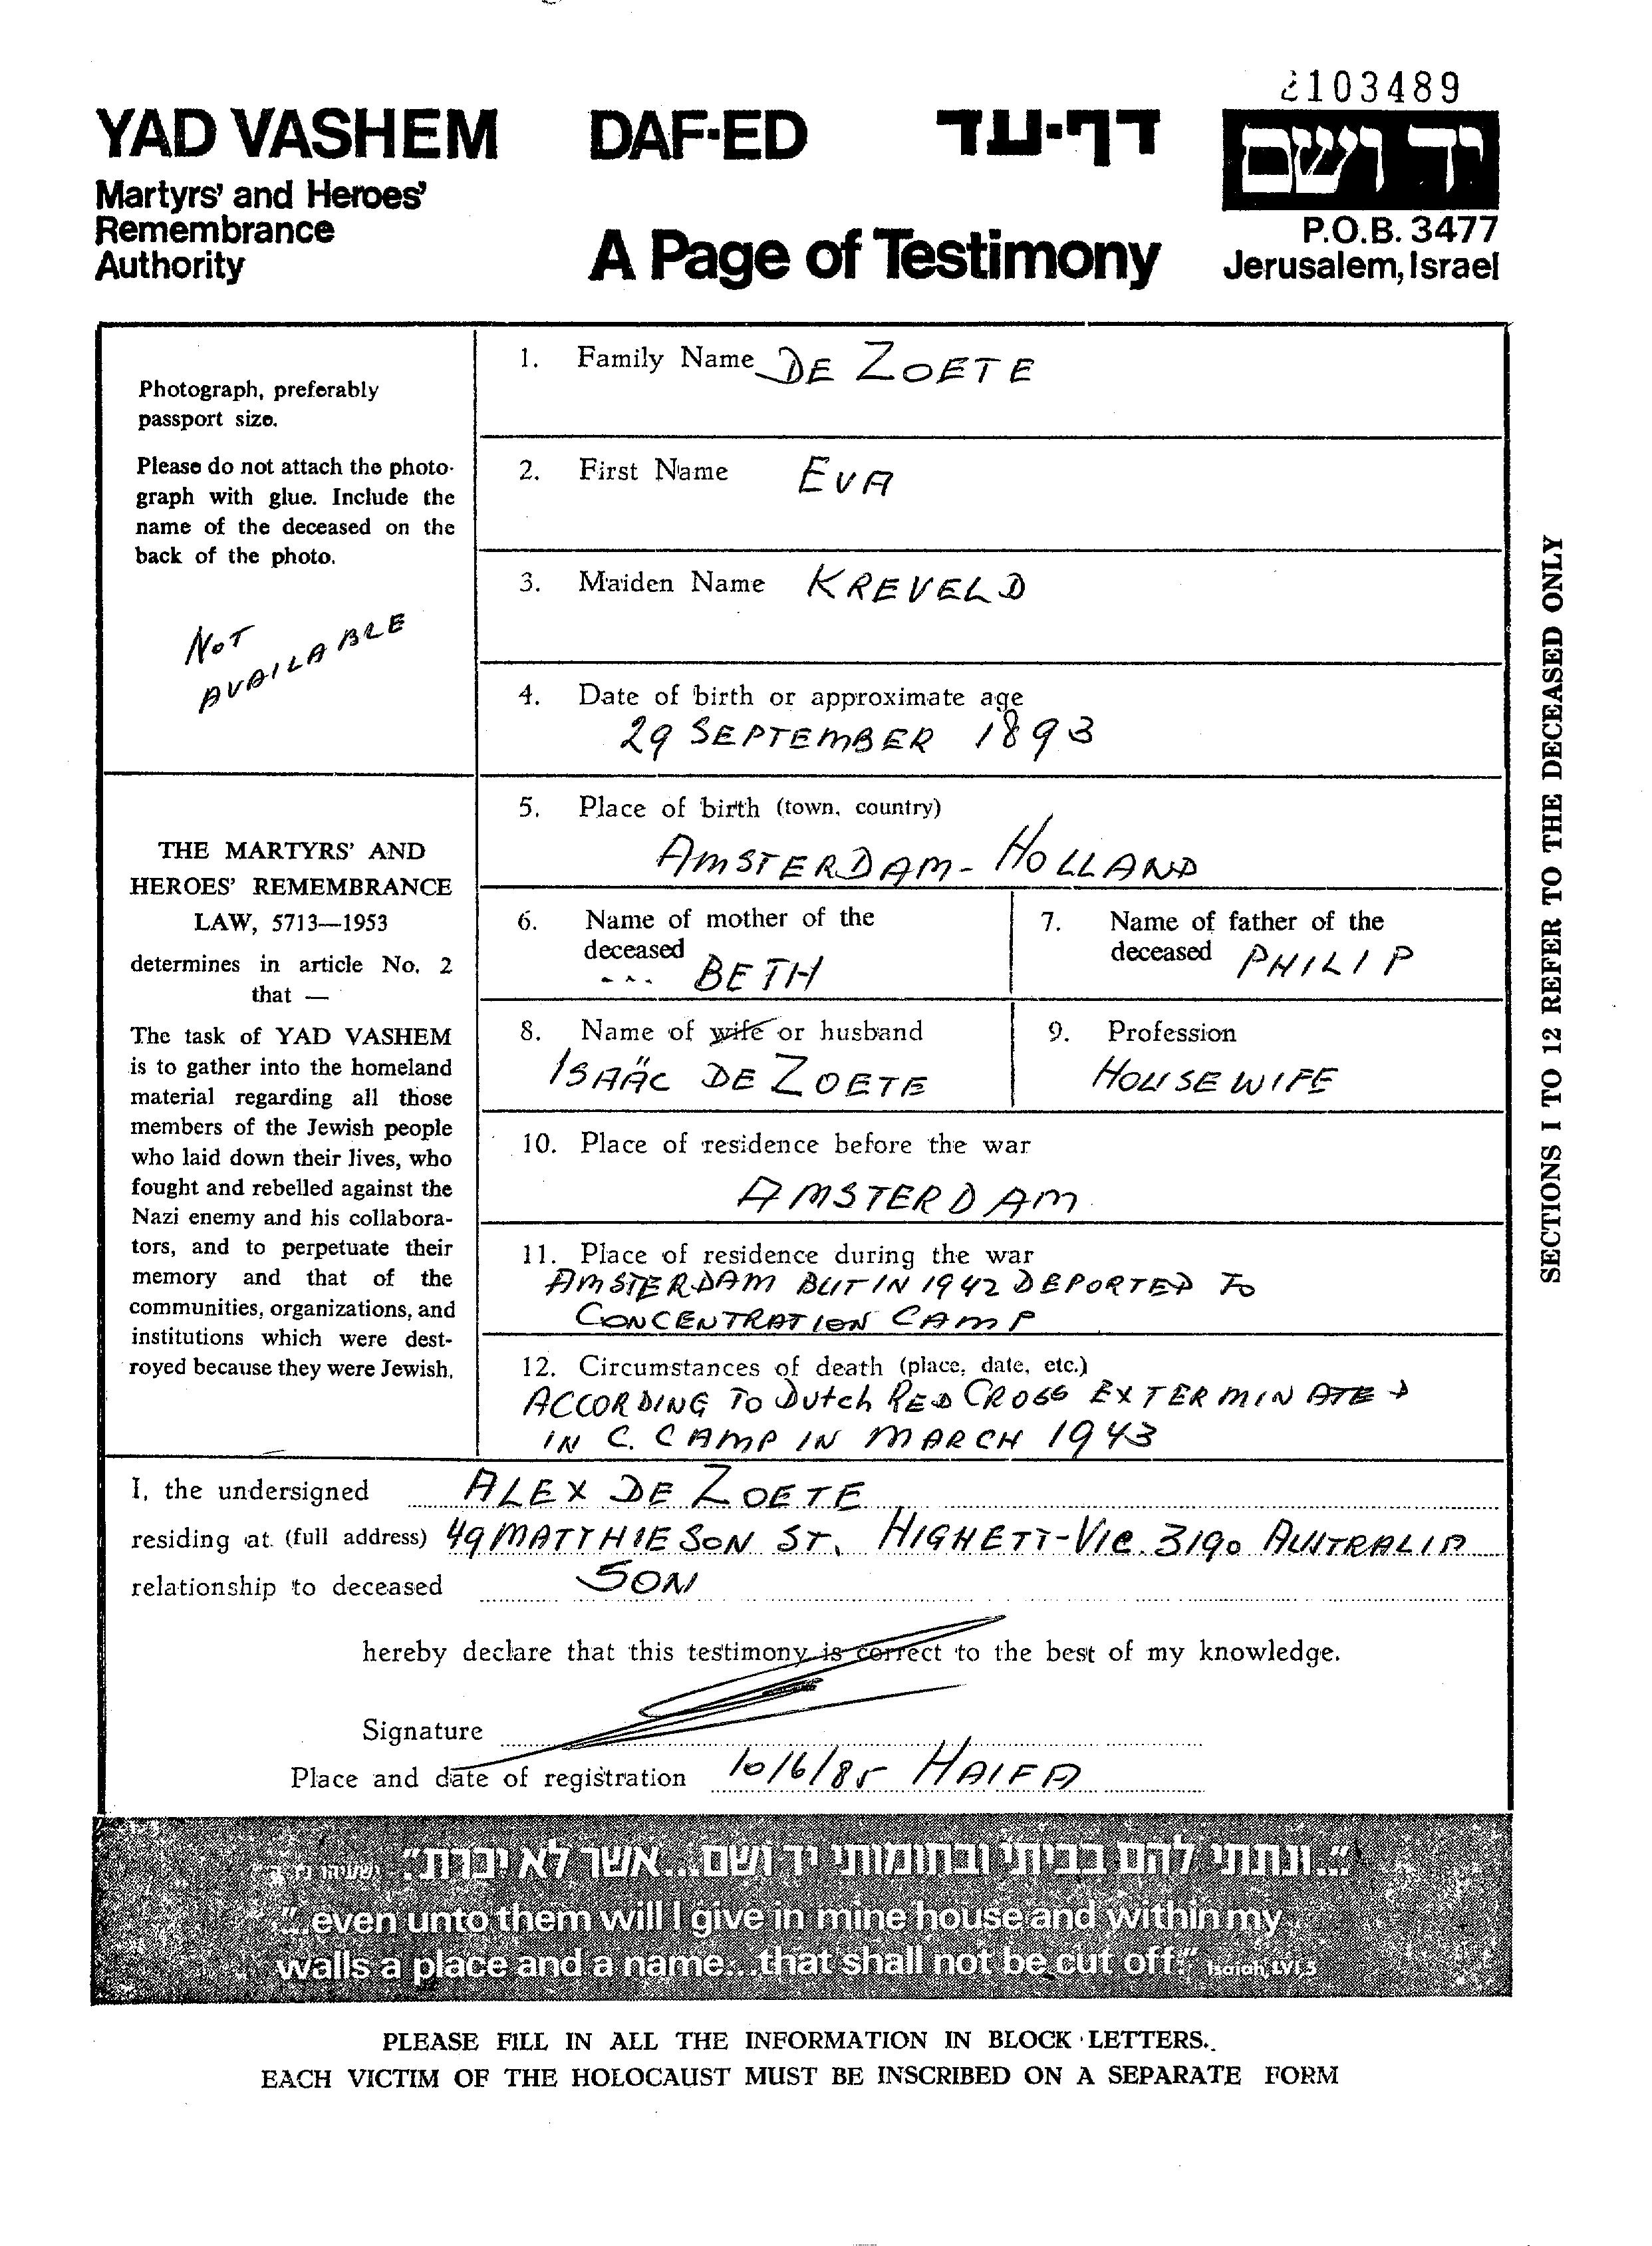 2103489
YAD VASHEM DAF-ED דף-עד יד ושם
Martyrs' and Heroes'
Remembrance
Authority
A Page of Testimony
P.O.B. 3477
Jerusalem, Israel
Photograph, preferably
passport size.
Please do not attach the photo-
graph with glue. Include the
name of the deceased on the
back of the photo.
NOT
AVAILABLE
THE MARTYRS' AND
HEROES' REMEMBRANCE
LAW, 5713—1953
determines in article No. 2
that —
The task of YAD VASHEM
is to gather into the homeland
material regarding all those
members of the Jewish people
who laid down their lives, who
fought and rebelled against the
Nazi enemy and his collabora-
tors, and to perpetuate their
memory and that of the
communities, organizations, and
institutions which were dest-
royed because they were Jewish.
1. Family Name DE ZOETE
2. First Name EVA
3. Maiden Name KREVELD
4. Date of birth or approximate age
29 SEPTEMBER 1893
5. Place of birth (town, country)
AMSTERDAM - HOLLAND
6. Name of mother of the
deceased
... BETH
7. Name of father of the
deceased PHILIP
8. Name of wife or husband
ISAÄC DE ZOETE
9. Profession
HOUSEWIFE
10. Place of residence before the war
AMSTERDAM
11. Place of residence during the war
AMSTERDAM BUT IN 1942 DEPORTED TO
CONCENTRATION CAMP
12. Circumstances of death (place, date, etc.)
ACCORDING TO DUTCH RED CROSS EXTERMINATED
IN C. CAMP IN MARCH 1943
SECTIONS 1 TO 12 REFER TO THE DECEASED ONLY
I, the undersigned ALEX DE ZOETE
residing at (full address) 49 MATTHIESON ST. HIGHETT-VIC. 3190 AUSTRALIA
relationship to deceased SON
hereby declare that this testimony is correct to the best of my knowledge.
Signature
Place and date of registration 10/6/85 HAIFA
"..ונתתי להם בביתי ובחומותי יד ושם...אשר לא יכרת."
"...even unto them will I give in mine house and within my
walls a place and a name...that shall not be cut off." Isaiah, LVI, 5
PLEASE FILL IN ALL THE INFORMATION IN BLOCK LETTERS.
EACH VICTIM OF THE HOLOCAUST MUST BE INSCRIBED ON A SEPARATE FORM